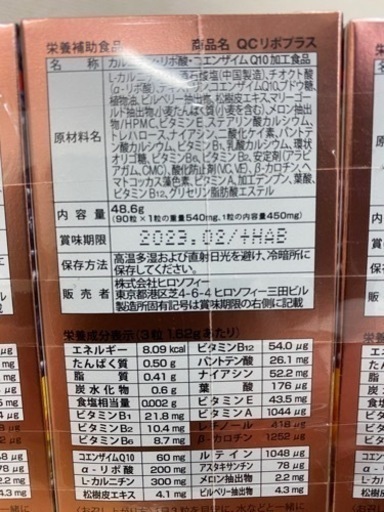 栄養補助食品 商品名 QCリポプラス
名称 カルニチン・リポ酸・コエンザイムQ10加工食品
原材料名
L-カルニチン 酒石酸塩(中国製造)、チオクト酸
(α-リポ酸)、コエンザイムQ10、ブドウ糖、
植物油、ビルベリー抽出物、松樹皮エキス、マリーゴー
ルド抽出物、小麦たんぱく質(小麦を含む)、メロン抽出
物/HPMC、ビタミンE、ステアリン酸カルシウム、
トレハロース、ナイアシン、酸化ケイ素、パントテ
ン酸カルシウム、ビタミンB1、乳酸カルシウム、環状
オリゴ糖、ビタミンB6、ビタミンB2、安定剤(アラビ
アガム、CMC)、酸化防止剤(VC、VE)、β-カロテン、ヘ
マトコッカス藻色素、ビタミンA、加工デンプン、葉酸、
ビタミンB12、グリセリン脂肪酸エステル
内容量 48.6g
(90粒×1粒の重量540mg、1粒の内容量450mg)
賞味期限 2023.02/+HAB
保存方法 高温多湿および直射日光を避け、冷暗所に
保存してください。
販売者 株式会社ヒロソフィー
東京都港区芝4-6-4 ヒロソフィー三田ビル
製造所固有記号は賞味期限の右側に記載
栄養成分表示(3粒1.62gあたり)
エネルギー 8.09kcal ビタミンB12 54.0μg
たんぱく質 0.50g パントテン酸 26.1mg
脂質 0.41g ナイアシン 52.2mg
炭水化物 0.6g 葉酸 176μg
食塩相当量 0.002g ビタミンE 43.5mg
ビタミンB1 21.8mg ビタミンA 1044μg
ビタミンB2 10.4mg レチノール 418μg
ビタミンB6 8.7mg β-カロチン 1252μg
コエンザイムQ10 60mg ルテイン 1048μg
α-リポ酸 200mg アスタキサンチン 78μg
L-カルニチン 300mg メロン抽出物 2.2mg
松樹皮エキス 4.1mg ビルベリー抽出物 4.3mg